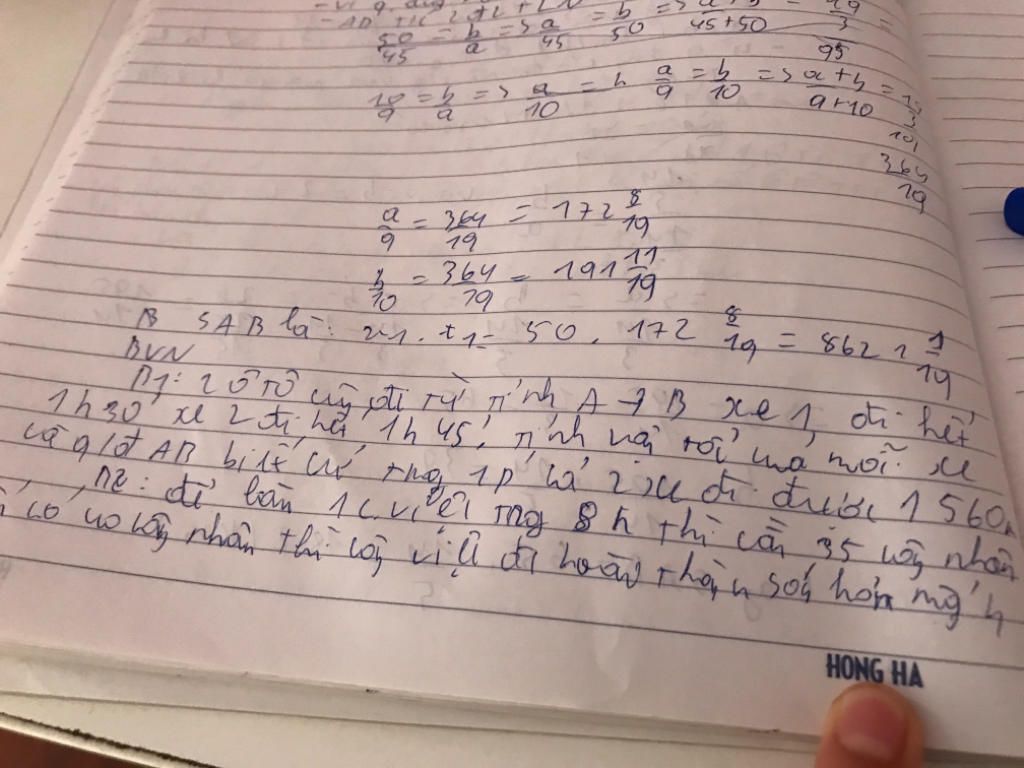 50/45 = b/a => a/45 = b/50 45+50 95
10/9 = b/a => a/10 = a/9 = b/10 => a+b/9+10 =
364/19
a/9 = 364/19 = 172 8/19
b/10 = 364/19 = 191 11/19
SAB là: v1. t1= 50. 172 8/19 = 8621 1/19
BVN
B1: 2 ô tô cùng đi từ tỉnh A → B xe 1 đi hết
1h30' xe 2 đi hết 1h45', tính vận tốc của mỗi xe
và q/đ AB biết cứ trng 1p cả 2 xe đi được 1560m
B2: để làn 1 c.việc trng 8h thì cần 35 công nhân
có 40 công nhân thì công việc đ hoàn thành sớm hơn mấy h
HONG HA